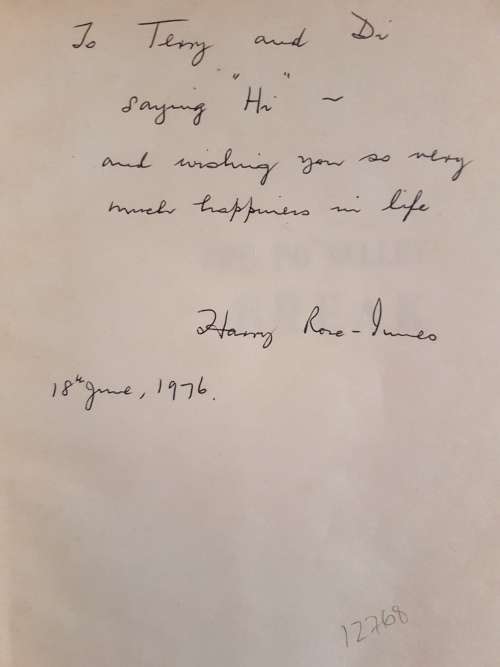 To Terry and Di
saying "Hi" ~
and wishing you so very
much happiness in life
Harry Rose-Innes
18th June, 1976.
12768